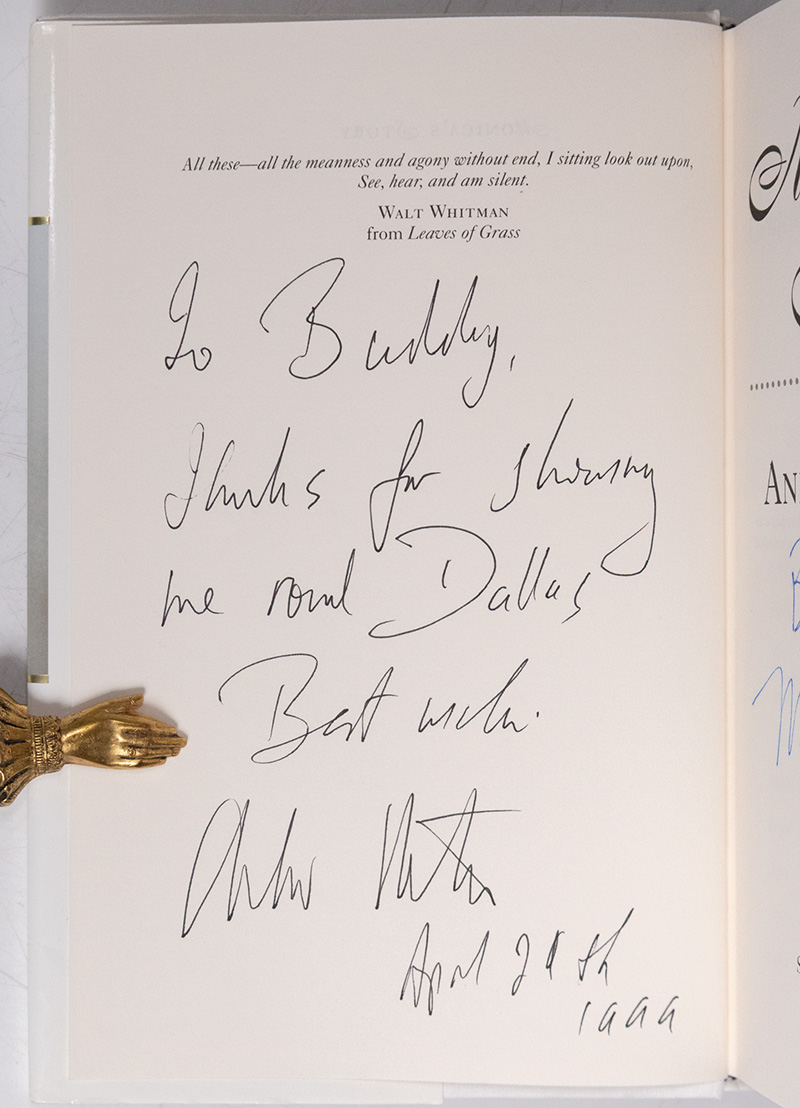 All these—all the meanness and agony without end, I sitting look out upon,
See, hear, and am silent.
WALT WHITMAN
from Leaves of Grass
To Buddy,
Thanks for showing
me round Dallas
Best wishes.
Andrew Morton
April 29th
1999
AN